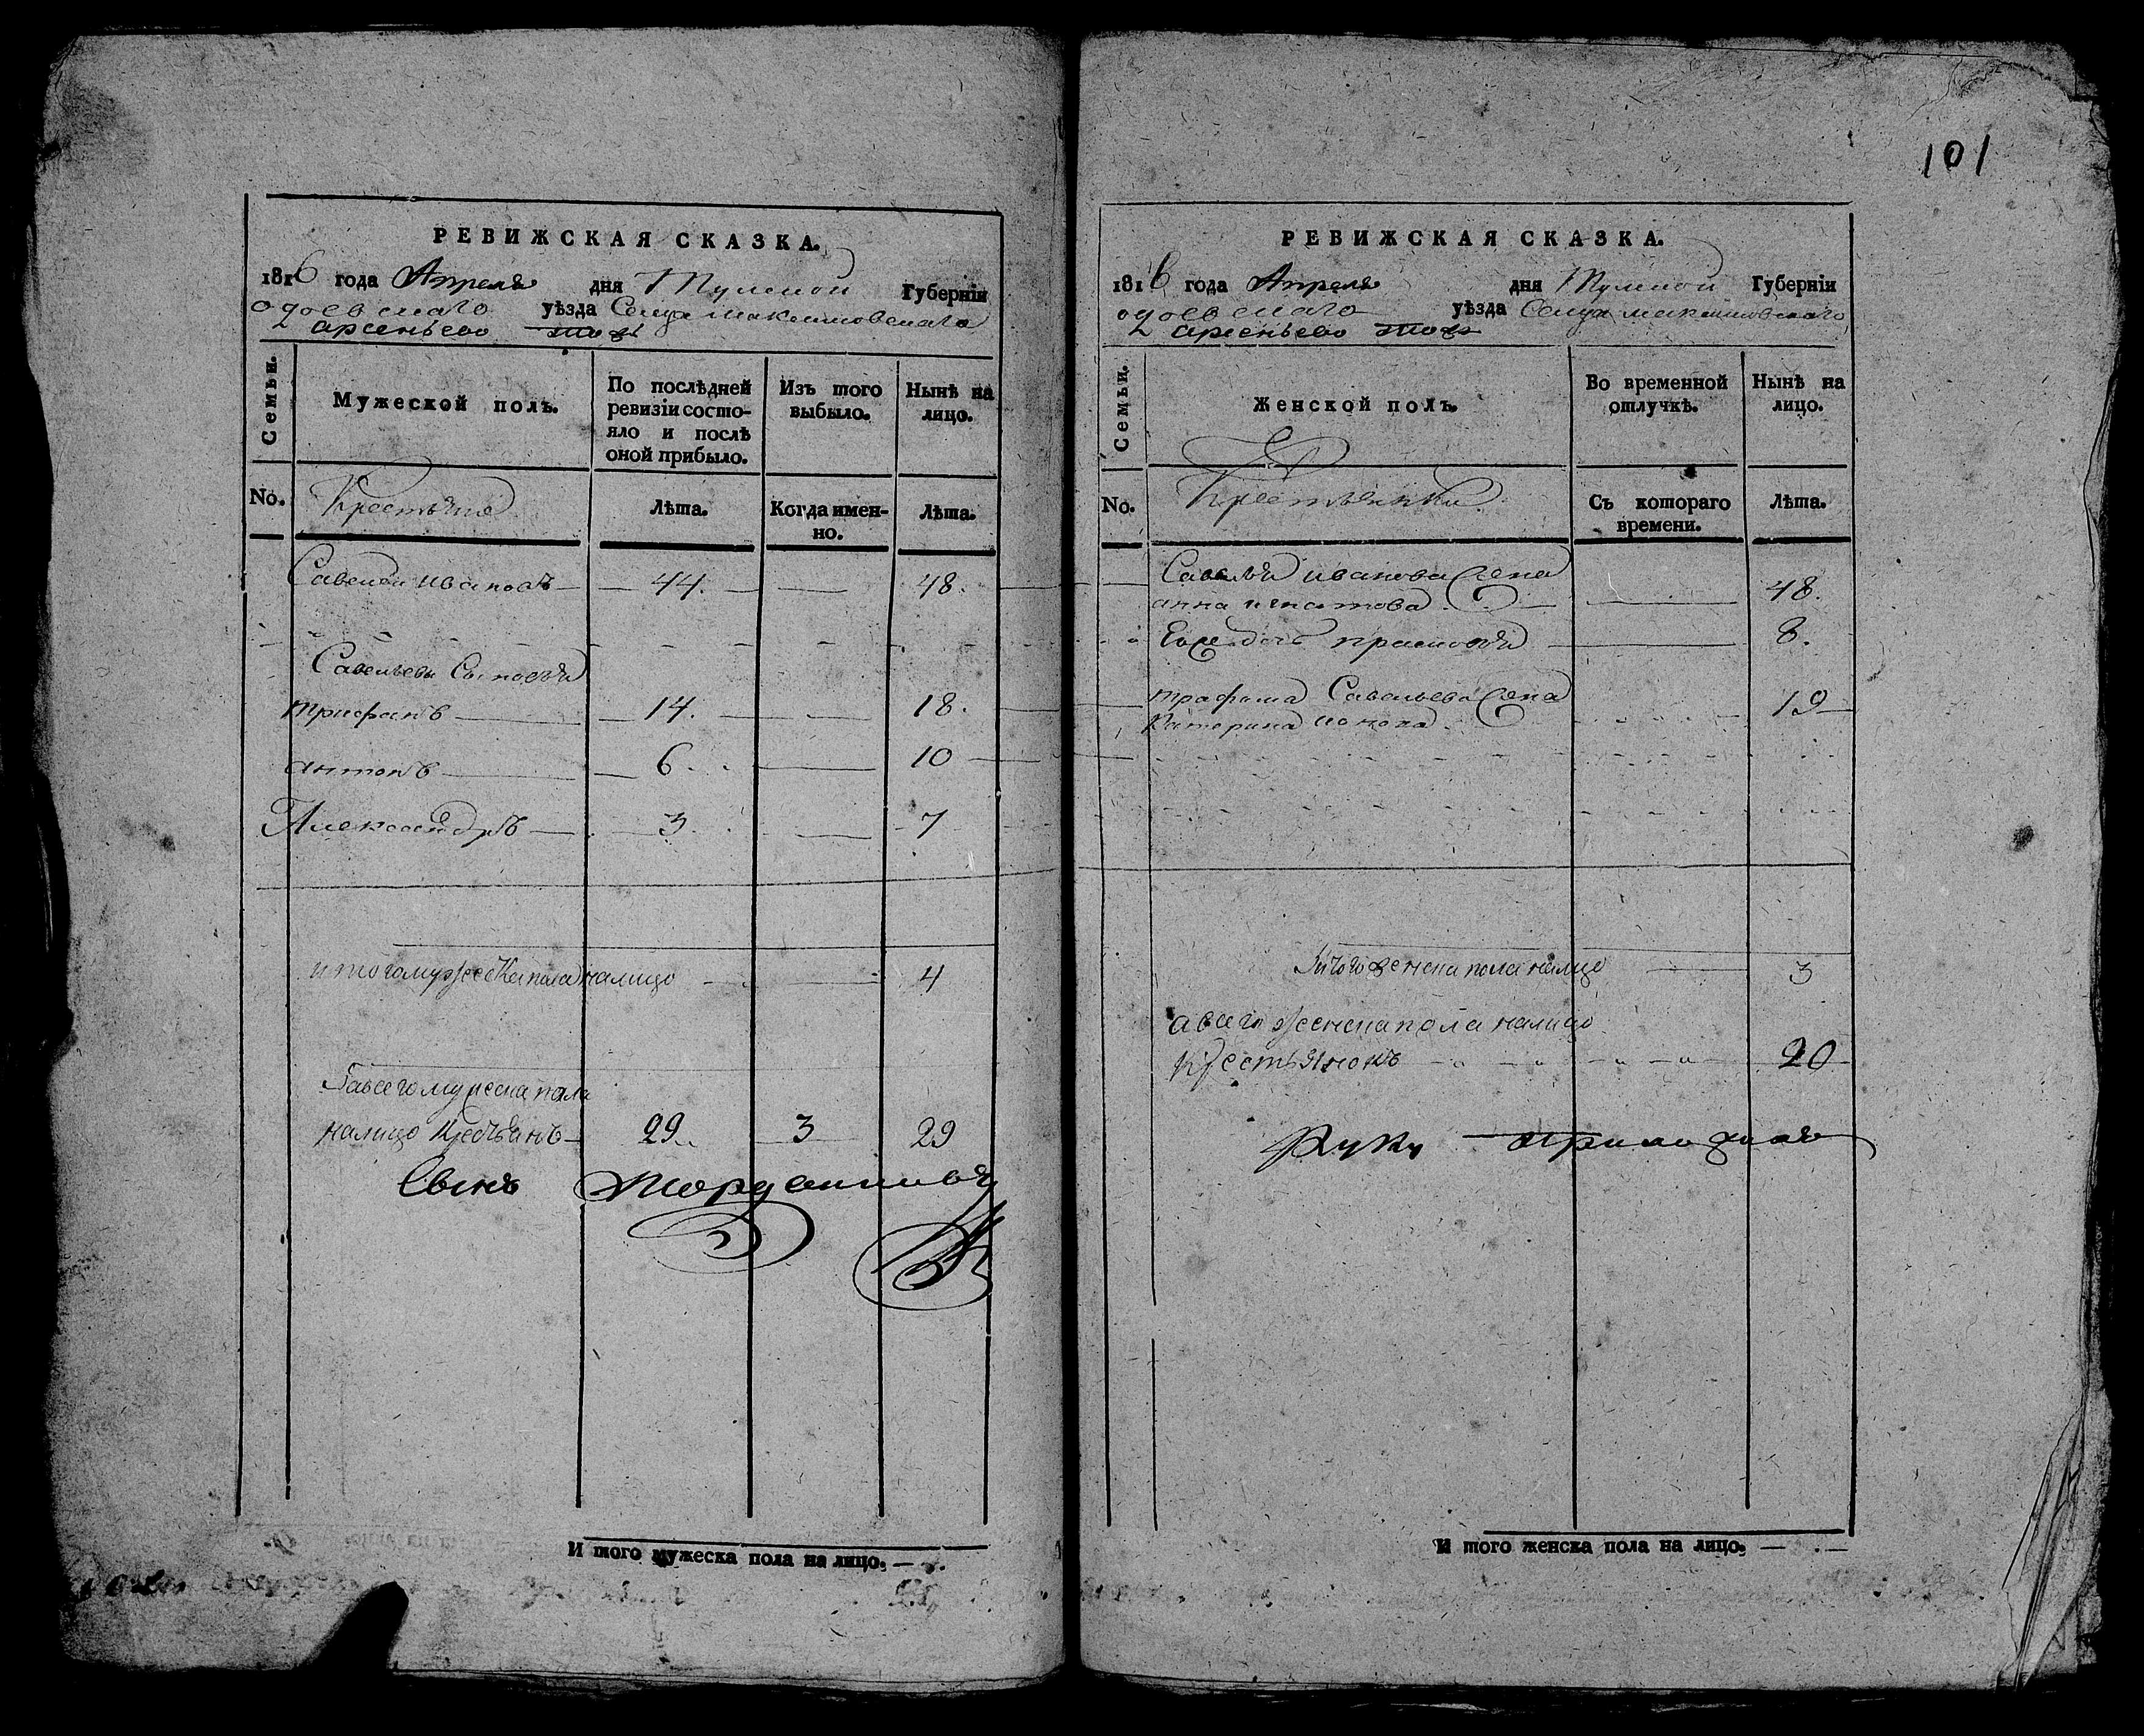 101
РЕВИЖСКАЯ СКАЗКА.
1816 года Апреля дня Тулской Губерніи
одоевскаго уѣзда Селца максимовскаго
арсеньево тожъ
Семьи.
Мужеской полъ.
По послѣдней ревизіи состо-
яло и послѣ
оной прибыло.
Изъ того
выбыло.
Нынѣ на
лицо.
No.
Крестьяне
Лѣта.
Когда имен-
но.
Лѣта.
Савелей ивановъ 44. 48.
Савельевы Сыновья
трифонъ 14. 18.
антонъ 6 10
Александръ 3 7
итого мужеска пола налицо 4
Авсего мужеска пола
налицо Крестьянъ 29 3 29
Сынъ
И того мужеска пола на лицо.
РЕВИЖСКАЯ СКАЗКА.
1816 года Апреля дня Тулской Губерніи
одоевскаго уѣзда Селца максимовскаго
арсеньево тожъ
Семьи.
Женской полъ.
Во временной
отлучкѣ.
Нынѣ на
лицо.
No.
Крестьянки
Съ котораго
времени.
Лѣта.
Савелья иванова жена
анна игнатова 48.
Ево дочь прасковья 8.
трафима Савельева жена
Катерина 19
Итого женска пола налицо 3
а всего женска пола налицо
крестьянокъ 20
Руку приложилъ
И того женска пола на лицо.